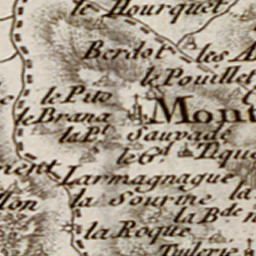 le Hourquet
Berdot
les
le Pouillet
le Pito
Mont
le Brana
la P.t
Sauvade
le G.d
Larmagnague
la Sourine
la
la B.de
la Roque
Tuilerie